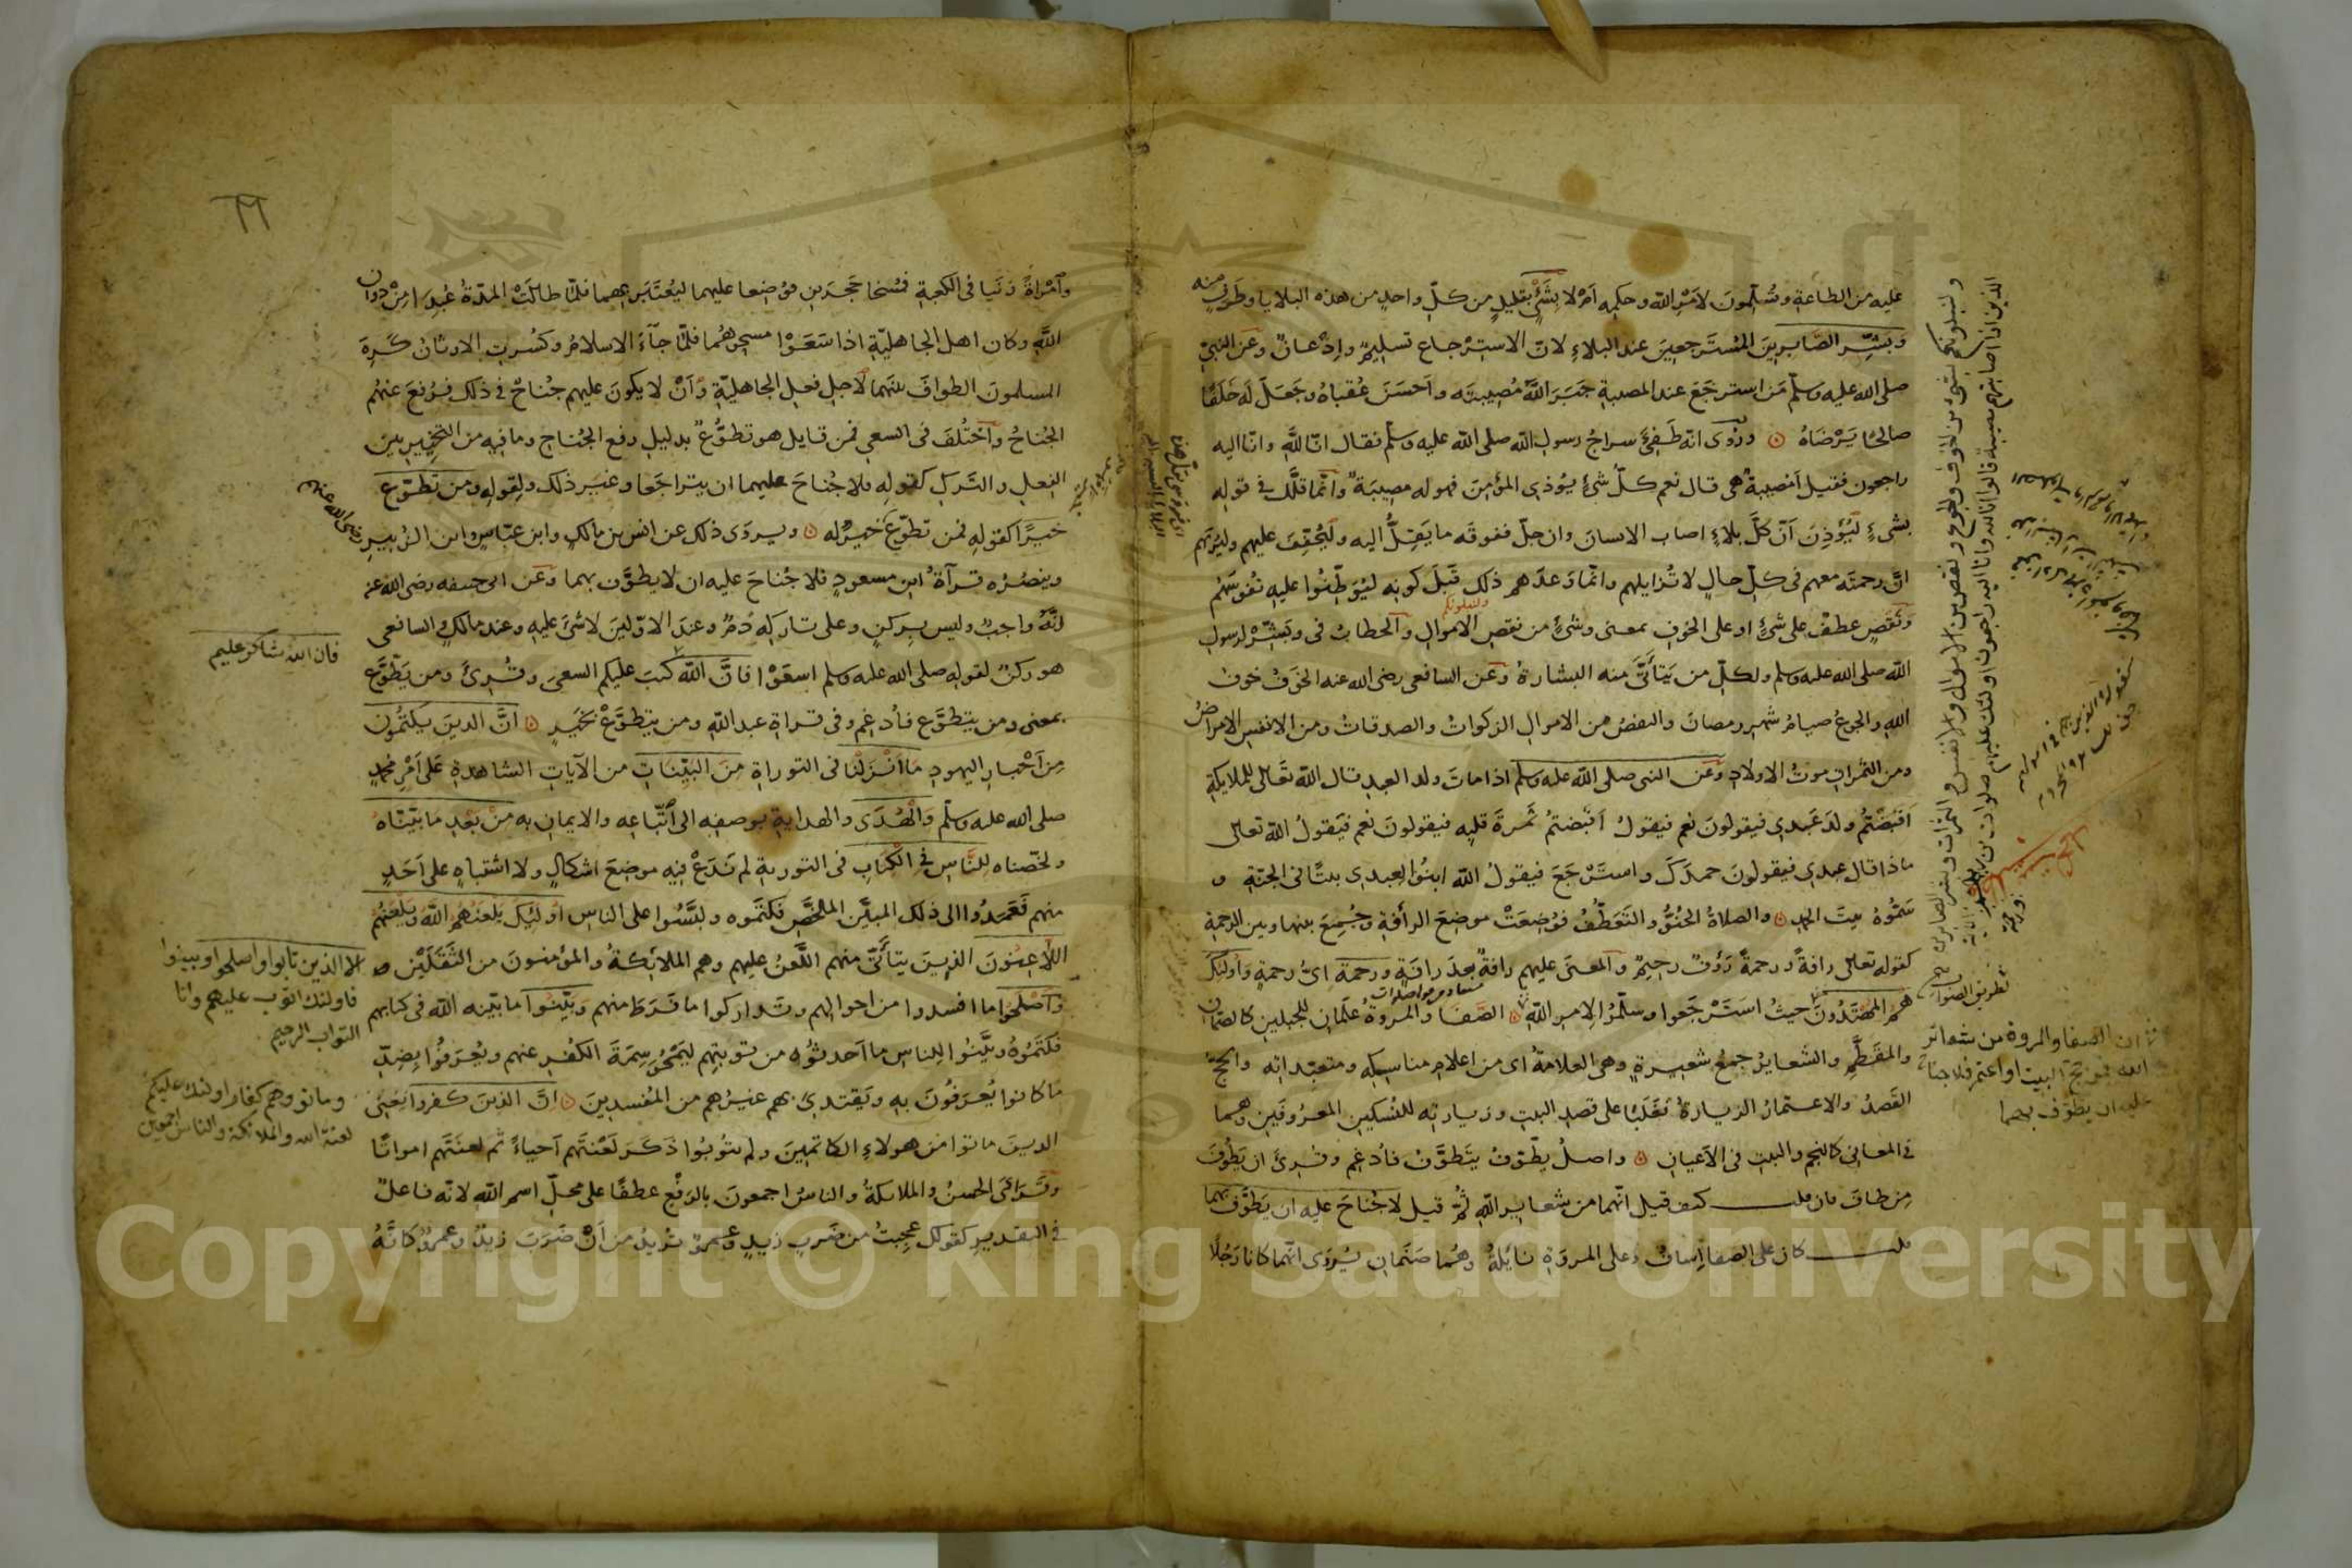 عليه من الطاعة وتسلمون لامر الله وحكمه ام لا بشيء بقليل من كل واحد من هذه البلايا وطرف منه
وبشر الصابرين المسترجعين عند البلاء لان الاسترجاع تسليم واذعان وعن النبي
صلى الله عليه وسلم من استرجع عند المصيبة جبر الله مصيبته واحسن عقباه وجعل له خلفا
صالحا يرضاه وروى انه طفئ سراج رسول الله صلى الله عليه وسلم فقال انا لله وانا اليه
راجعون فقيل امصيبة هي قال نعم كل شيء يوذي المؤمن فهو له مصيبة وانما قلل في قوله
بشيء ليؤذن ان كل بلاء اصاب الانسان وان جل ففوقه ما يقل اليه وليخفف عليهم وليريهم
ان رحمته معهم في كل حال لا تزايلهم وانما وعدهم ذلك قبل كونه ليوطنوا عليه نفوسهم
ونقص عطف على شيء او على الخوف بمعنى وشيء من نقص الاموال والخطاب في وبشر لرسول
الله صلى الله عليه وسلم ولكل من يتاتى منه البشارة وعن الشافعي رضى الله عنه الخوف خوف
الله والجوع صيام شهر رمضان والنقص من الاموال الزكوات والصدقات ومن الانفس الامراض
ومن الثمرات موت الاولاد وعن النبي صلى الله عليه وسلم اذا مات ولد العبد قال الله تعالى للملايكة
اقبضتم ولد عبدي فيقولون نعم فيقول اقبضتم ثمرة قلبه فيقولون نعم فيقول الله تعالى
ماذا قال عبدي فيقولون حمدك واسترجع فيقول الله ابنوا لعبدي بيتا في الجنة و
سموه بيت الحمد والصلاة الحنو والتعطف فوضعت موضع الرأفة وجمع بينها وبين الرحمة
كقوله تعالى رافة ورحمة رؤف رحيم والمعنى عليهم رافة بعد رافة ورحمة اي رحمة واولئك
هم المهتدون حيث استرجعوا وسلموا لامر الله الصفا والمروة علمان للجبلين كالصمان
والمقطم والشعاير جمع شعيرة وهي العلامة اي من اعلام مناسكه ومتعبداته والحج
القصد والاعتمار الزيارة فغلبا على قصد البيت وزيارته للنسكين المعروفين وهما
في المعاني كالنجم والبيت في الاعيان واصل يطوف يتطوف فادغم وقرئ ان يطوف
من طاف فان قلت كيف قيل انهما من شعاير الله ثم قيل لا جناح عليه ان يطوف بهما
قلت كان على الصفا اساف وعلى المروة نايلة وهما صنمان يروى انهما كانا رجلا
ان الصفا والمروة من شعائر
الله فمن حج البيت او اعتمر فلا جناح
عليه ان يطوف بهما
ولنبلونكم بشيء من الخوف والجوع ونقص من الاموال والانفس والثمرات وبشر الصابرين
الذين اذا اصابتهم مصيبة قالوا انا لله وانا اليه راجعون اولئك عليهم صلوات من ربهم
٦٦
وامراة زنيا في الكعبة فمسخا حجرين فوضعا عليهما ليعتبر بهما فلما طالت المدة عبدا من دون
الله وكان اهل الجاهلية اذا سعوا مسحوهما فلما جاء الاسلام وكسرت الاوثان كره
المسلمون الطواف بينهما لاجل فعل الجاهلية وان لا يكون عليهم جناح في ذلك فرفع عنهم
الجناح واختلف في السعي فمن قايل هو تطوع بدليل رفع الجناح وما فيه من التخيير بين
الفعل والترك كقوله فلا جناح عليهما ان يتراجعا وغير ذلك ولقوله ومن تطوع
خيرا كقوله فمن تطوع خيرا له ويروى ذلك عن انس بن مالك وابن عباس وابن الزبير رضى الله عنهم
وينصره قرآة ابن مسعود فلا جناح عليه ان لا يطوف بهما وعن ابي حنيفة رضى الله عنه
انه واجب وليس بركن وعلى تاركه دم وعند الاولين لا شيء عليه وعند مالك والشافعي
هو ركن لقوله صلى الله عليه وسلم اسعوا فان الله كتب عليكم السعي وقرئ ومن يطوع
بمعنى ومن يتطوع فادغم وفي قراة عبد الله ومن يتطوع بخير ان الذين يكتمون
من احبار اليهود ما انزلنا في التوراة من البينات من الآيات الشاهدة على امر محمد
صلى الله عليه وسلم والهدى والهداية بوصفه الى اتباعه والايمان به من بعد ما بيناه
ولخصناه للناس في الكتاب في التورية لم ندع فيه موضع اشكال ولا اشتباه على احد
منهم فعمدوا الى ذلك المبين الملخص فكتموه ولبسوا على الناس اولئك يلعنهم الله ويلعنهم
اللاعنون الذين يتاتى منهم اللعن عليهم وهم الملائكة والمؤمنون من الثقلين
واصلحوا ما افسدوا من احوالهم وتداركوا ما فرط منهم وبينوا ما بينه الله في كتابهم
فكتموه وبينوا للناس ما احدثوه من توبتهم ليمحو سمة الكفر عنهم ويعرفوا بضد
ما كانوا يعرفون به ويقتدي بهم غيرهم من المفسدين ان الذين كفروا يعني
الذين ماتوا من هولاء الكاتمين ولم يتوبوا ذكر لعنتهم احياء ثم لعنتهم امواتا
وقرا الحسن والملائكة والناس اجمعون بالرفع عطفا على محل اسم الله لانه فاعل
في التقدير كقولك عجبت من ضرب زيد وعمرو تريد من ان ضرب زيد وعمرو كانه
فان الله شاكر عليم
الا الذين تابوا واصلحوا وبينوا
فاولئك اتوب عليهم وانا
التواب الرحيم
وماتوا وهم كفار اولئك عليهم
لعنة الله والملائكة والناس اجمعين
Copyright © King Saud University